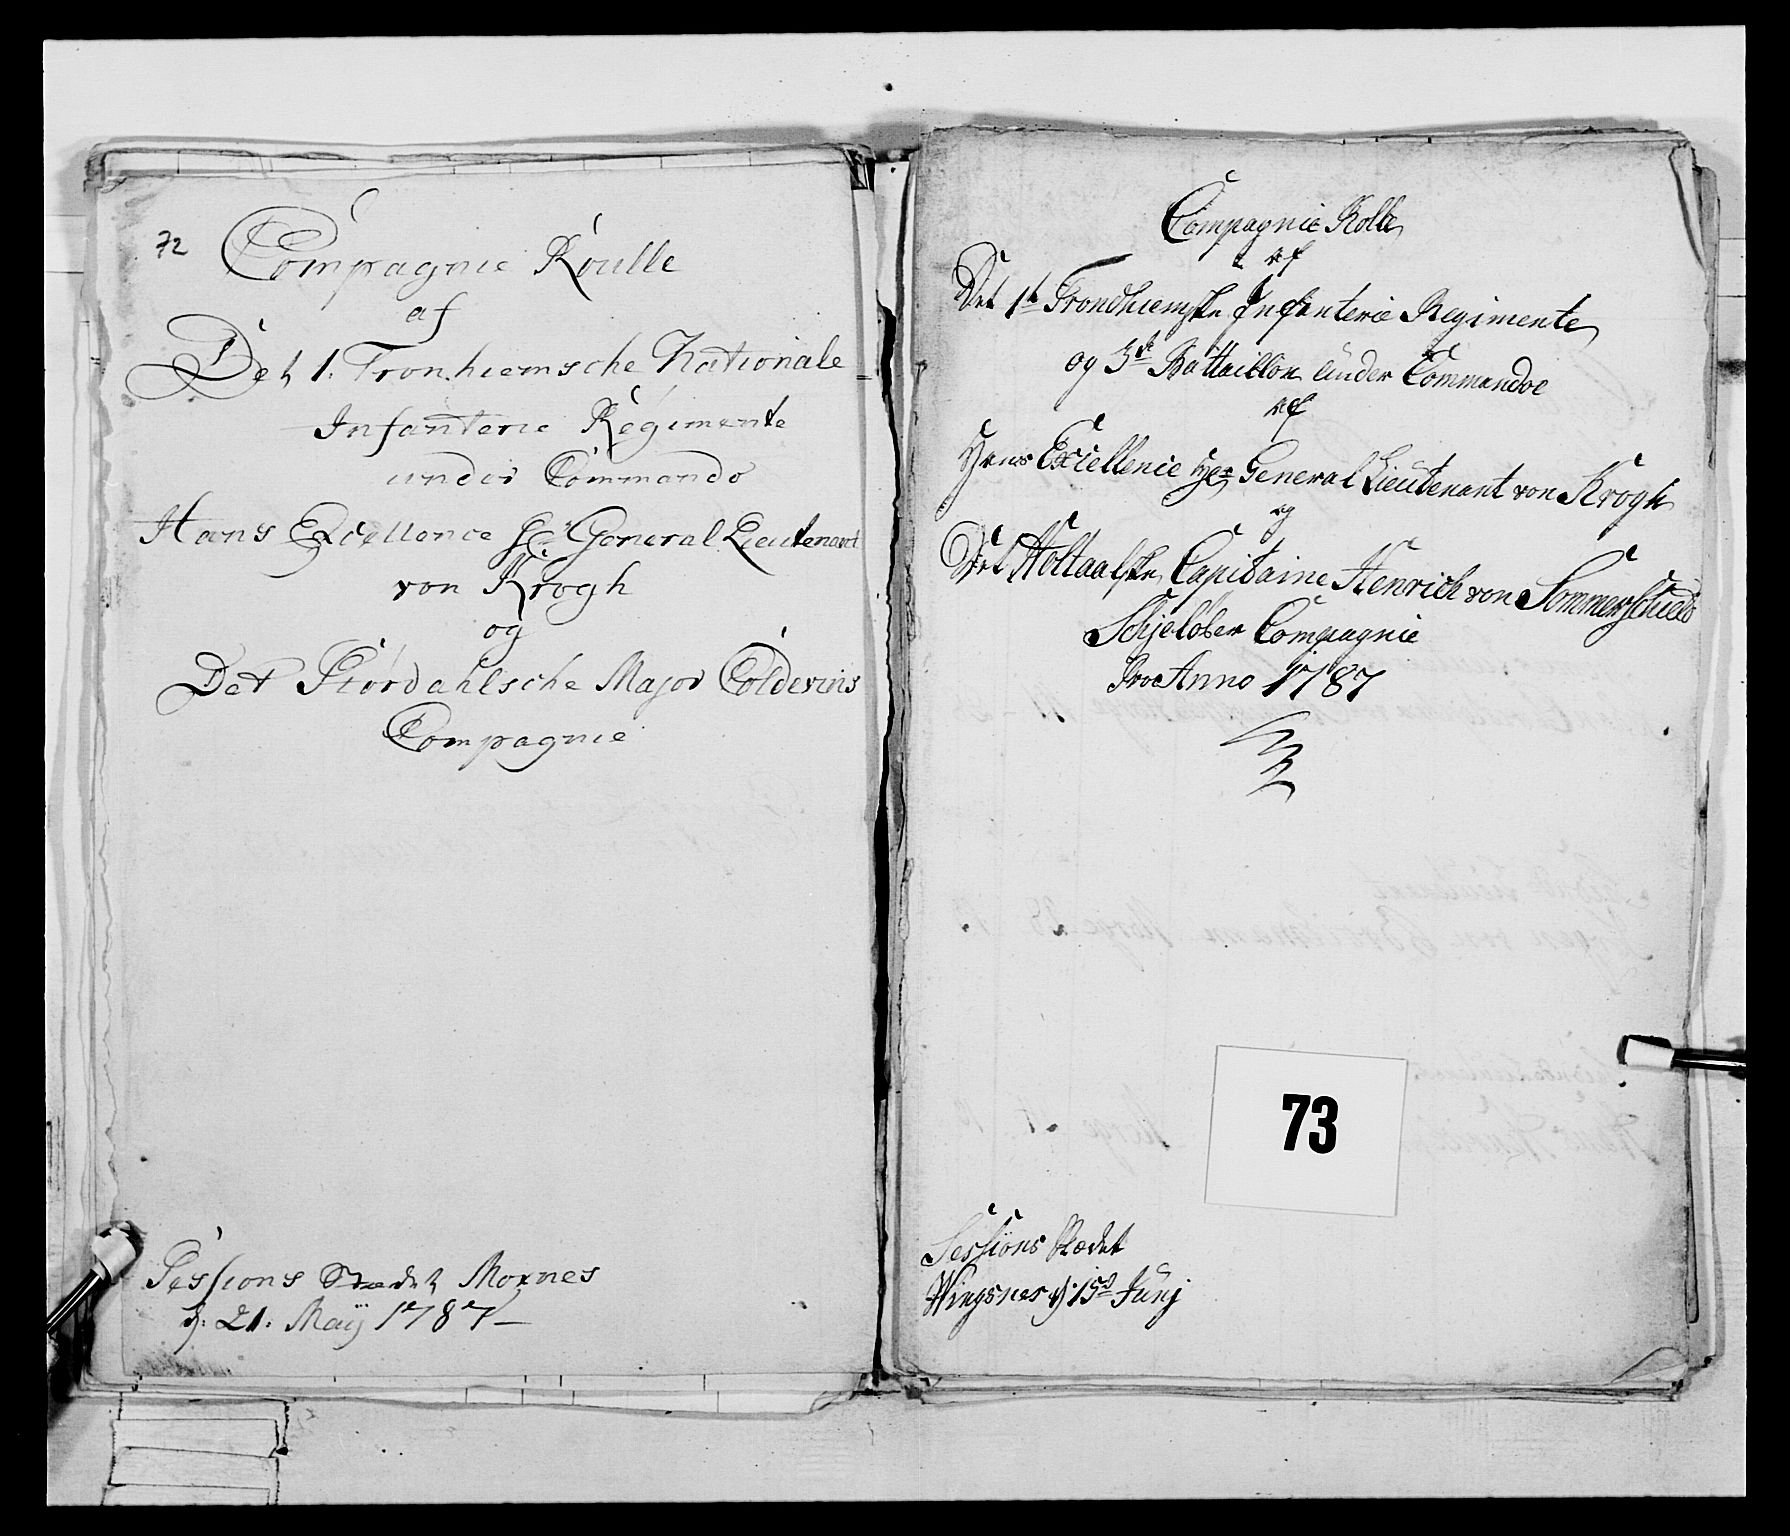 72
Compagnie Roulle
af
Det 1. Tronhiemsche Nationale
Infanterie Regimente
under Commando
Hans Excellence Hr General Lieutenant
von Krogh
og
Det Stördahlsche Major Coldevins
Compagnie
Sessions Stædet Moxnes
d: 21. Maÿ 1787
Compagnie Rolle
af
Det 1te Trondhiemske Infanterie Regimente
og 3de Battaillon under Commandoe
af
Hans Excellence Her General Lieutenant von Krogh
og
Det Holtaalske Capitaine Henrich von Sommerschield
Schjelöber Compagnie
Pro Anno 1787
73
Sessions Stædet
Wingsnes d: 15de Junj